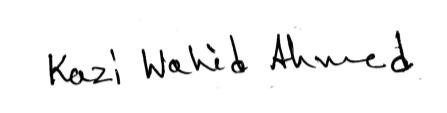 Kazi Wahid Ahmed